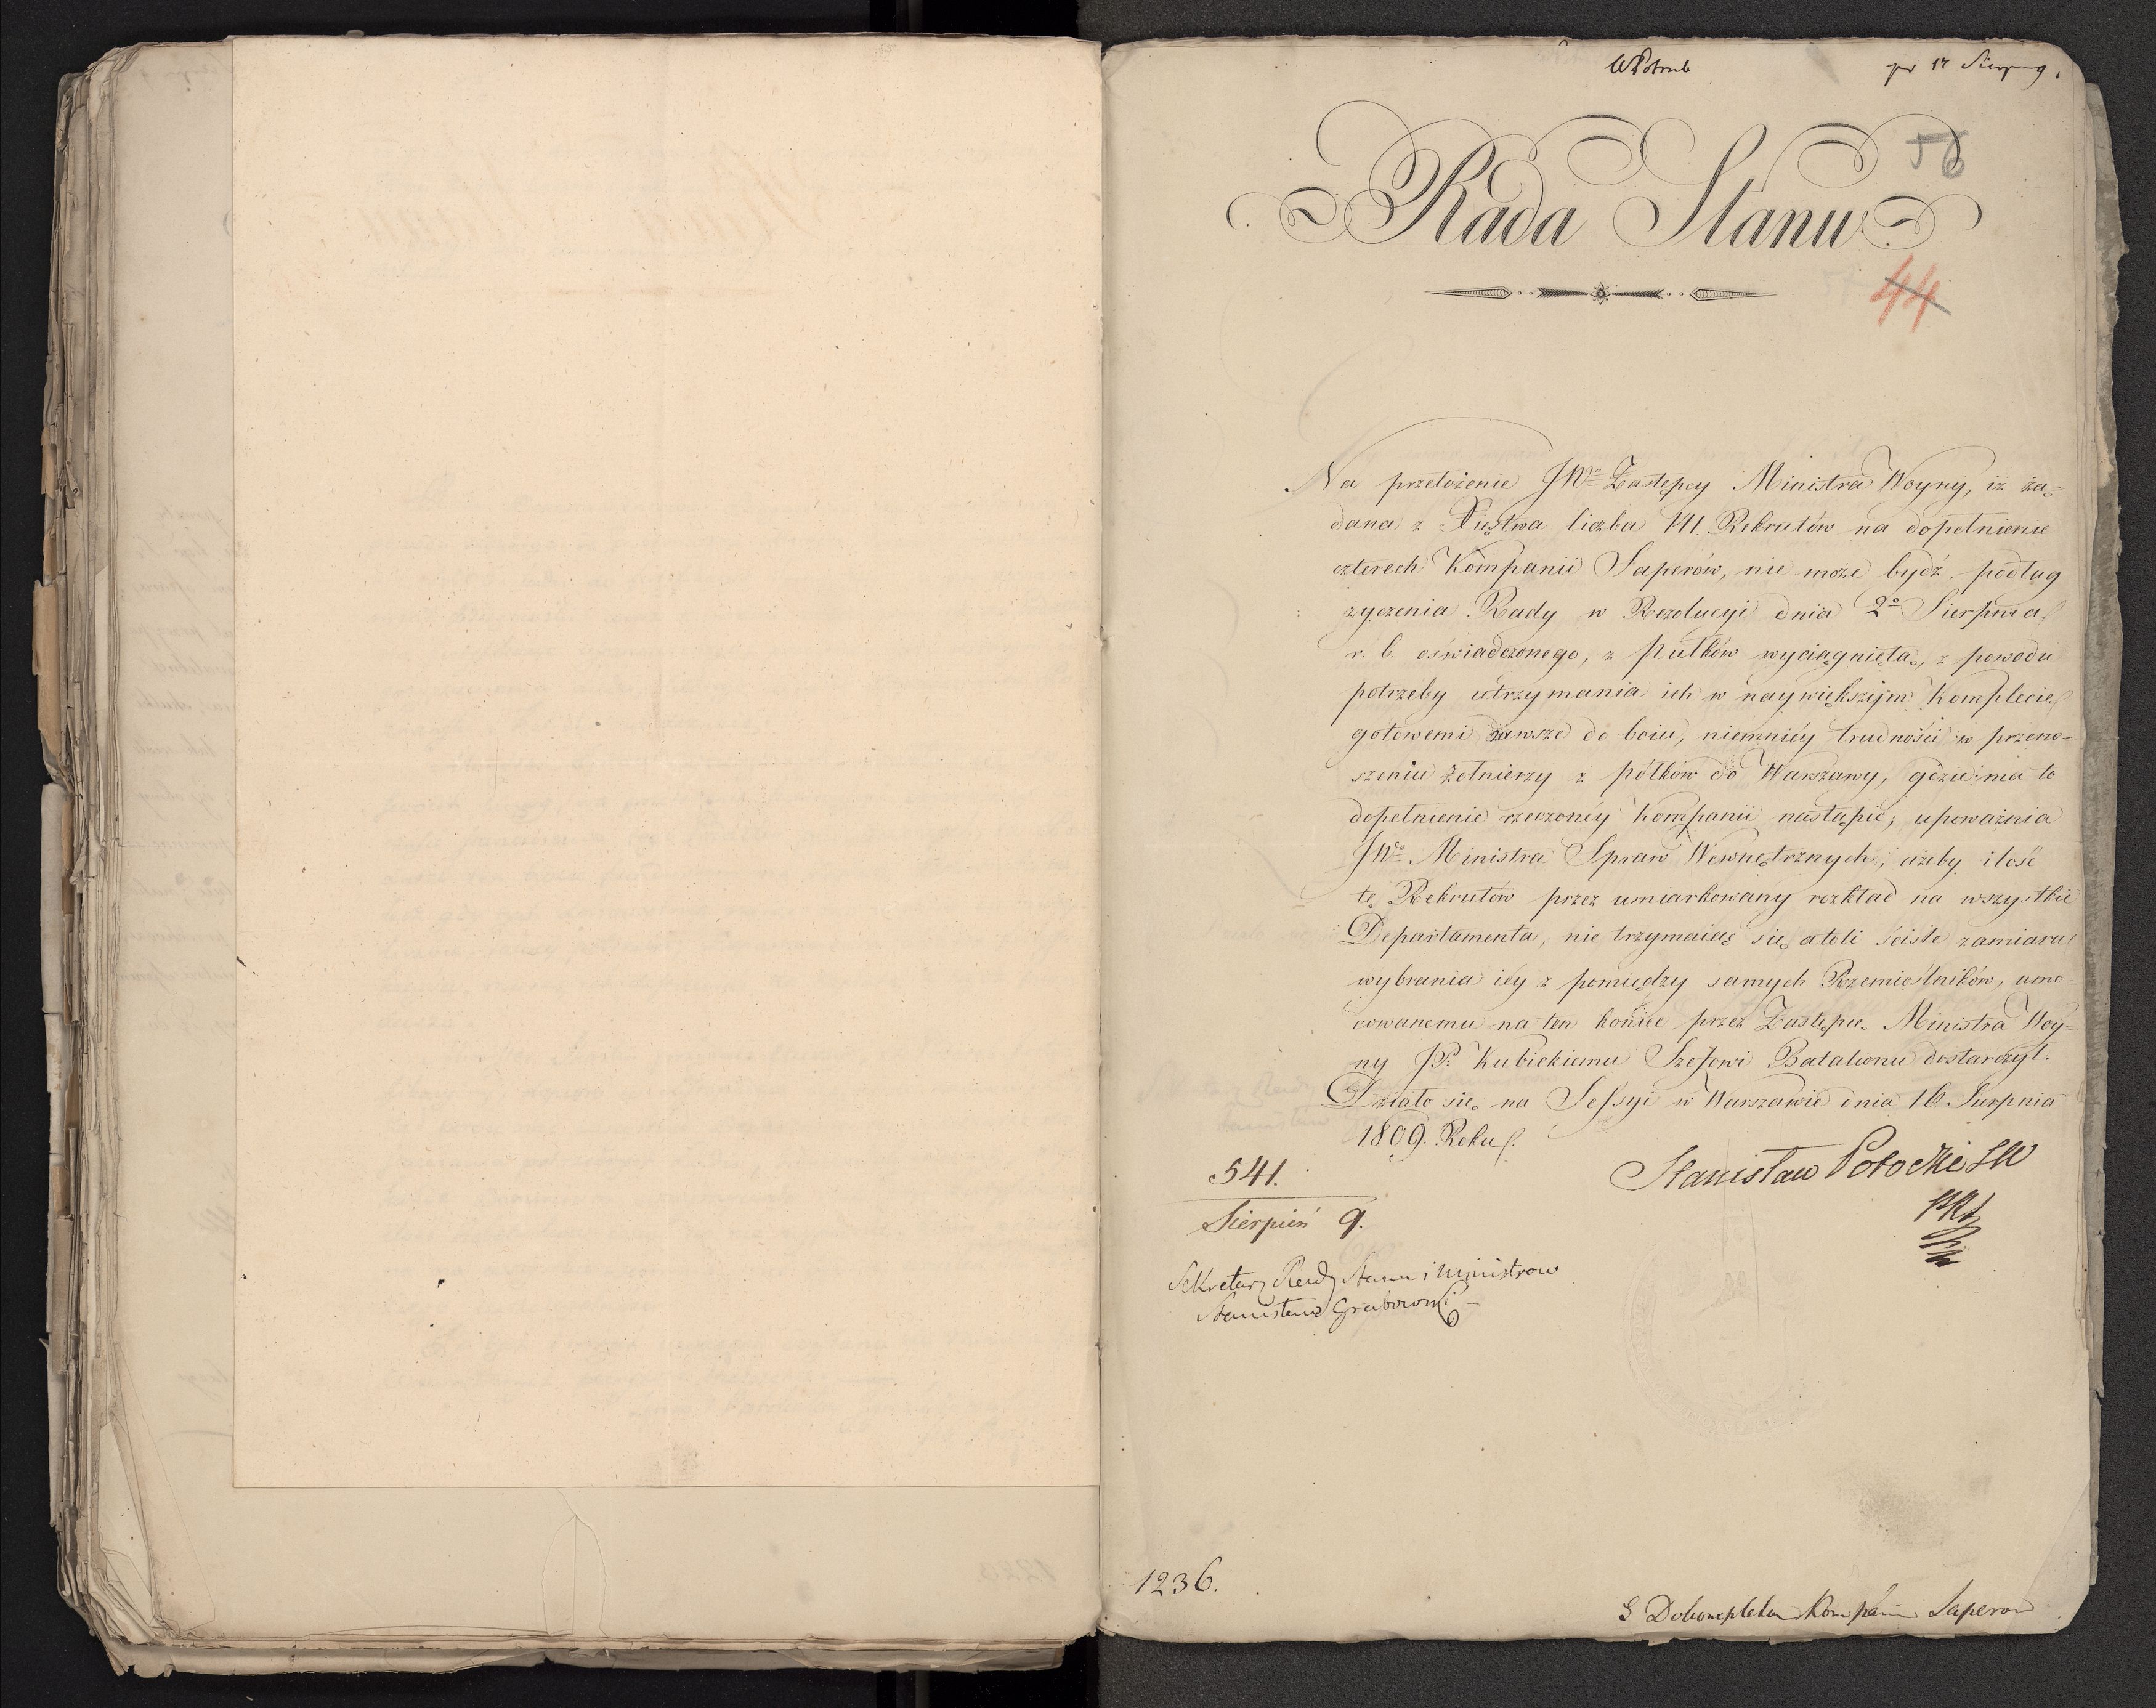 pr 17 Sierpnia 9.
56
Rada Stanu
44
Na przełożenie JWgo Zastępcy Ministra Woyny, iż żą-
dana z Xięstwa liczba 141. Rekrutów na dopełnienie
czterech Kompanii Saperów, nie może bydź, podług
życzenia Rady w Rezolucyi dnia 2o Sierpnia
r. b. oświadczonego, z Pułków wyciągniętą, z powodu
potrzeby utrzymania ich w naywiększym Komplecie
gotowemi zawsze do boiu, niemniéy trudności w przeno-
szeniu Żołnierzy z półków do Warszawy, gdzie ma to
dopełnienie rzeczonéy Kompanii nastąpić; upoważnia
JWgo Ministra Spraw Wewnętrznych, ażeby ilość
tę Rekrutów przez umiarkowany rozkład na wszystkie
Departamenta, nie trzymaiąc się atoli ściśle zamiaru
wybrania iéy z pomiędzy samych Rzemioślników, umo-
cowanemu na ten koniec przez Zastępcę Ministra Woy-
ny JP. Kubickiemu Szefowi Batalionu dostarczył.
Działo się na Sessyi w Warszawie dnia 16. Sierpnia
1809. Roku.
541.
Sierpień 9.
Stanisław Potocki SW
Sekretarz Rady Stanu i Ministrow
Stanisław Grabowski
1236.
Dokompletow Kompanii Saperow